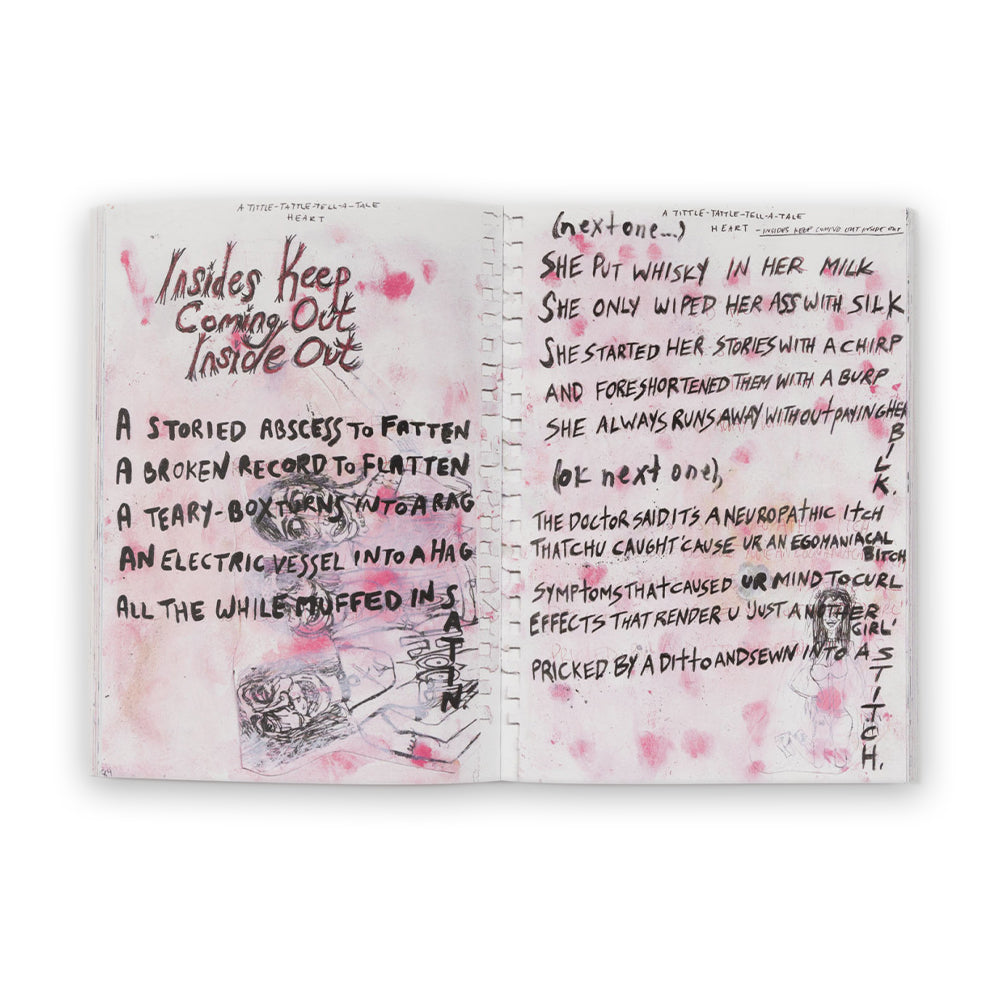 A TITTLE-TATTLE-TELL-A-TALE
HEART
Insides Keep
Coming Out
Inside Out
A STORIED ABSCESS TO FATTEN
A BROKEN RECORD TO FLATTEN
A TEARY-BOX TURNS INTO A RAG
AN ELECTRIC VESSEL INTO A HAG
ALL THE WHILE MUFFED IN SATIN
A TITTLE-TATTLE-TELL-A-TALE
HEART - INSIDES KEEP COMING OUT INSIDE OUT
(next one...)
SHE PUT WHISKY IN HER MILK
SHE ONLY WIPED HER ASS WITH SILK
SHE STARTED HER STORIES WITH A CHIRP
AND FORESHORTENED THEM WITH A BURP
SHE ALWAYS RUNS AWAY WITHOUT PAYING HER BILK.
(ok next one),
THE DOCTOR SAID IT'S A NEUROPATHIC ITCH
THATCHU CAUGHT 'CAUSE UR AN EGOMANIACAL BITCH
SYMPTOMS THAT CAUSED UR MIND TO CURL
EFFECTS THAT RENDER U JUST ANOTHER GIRL'
PRICKED BY A DITTO AND SEWN INTO A STITCH.